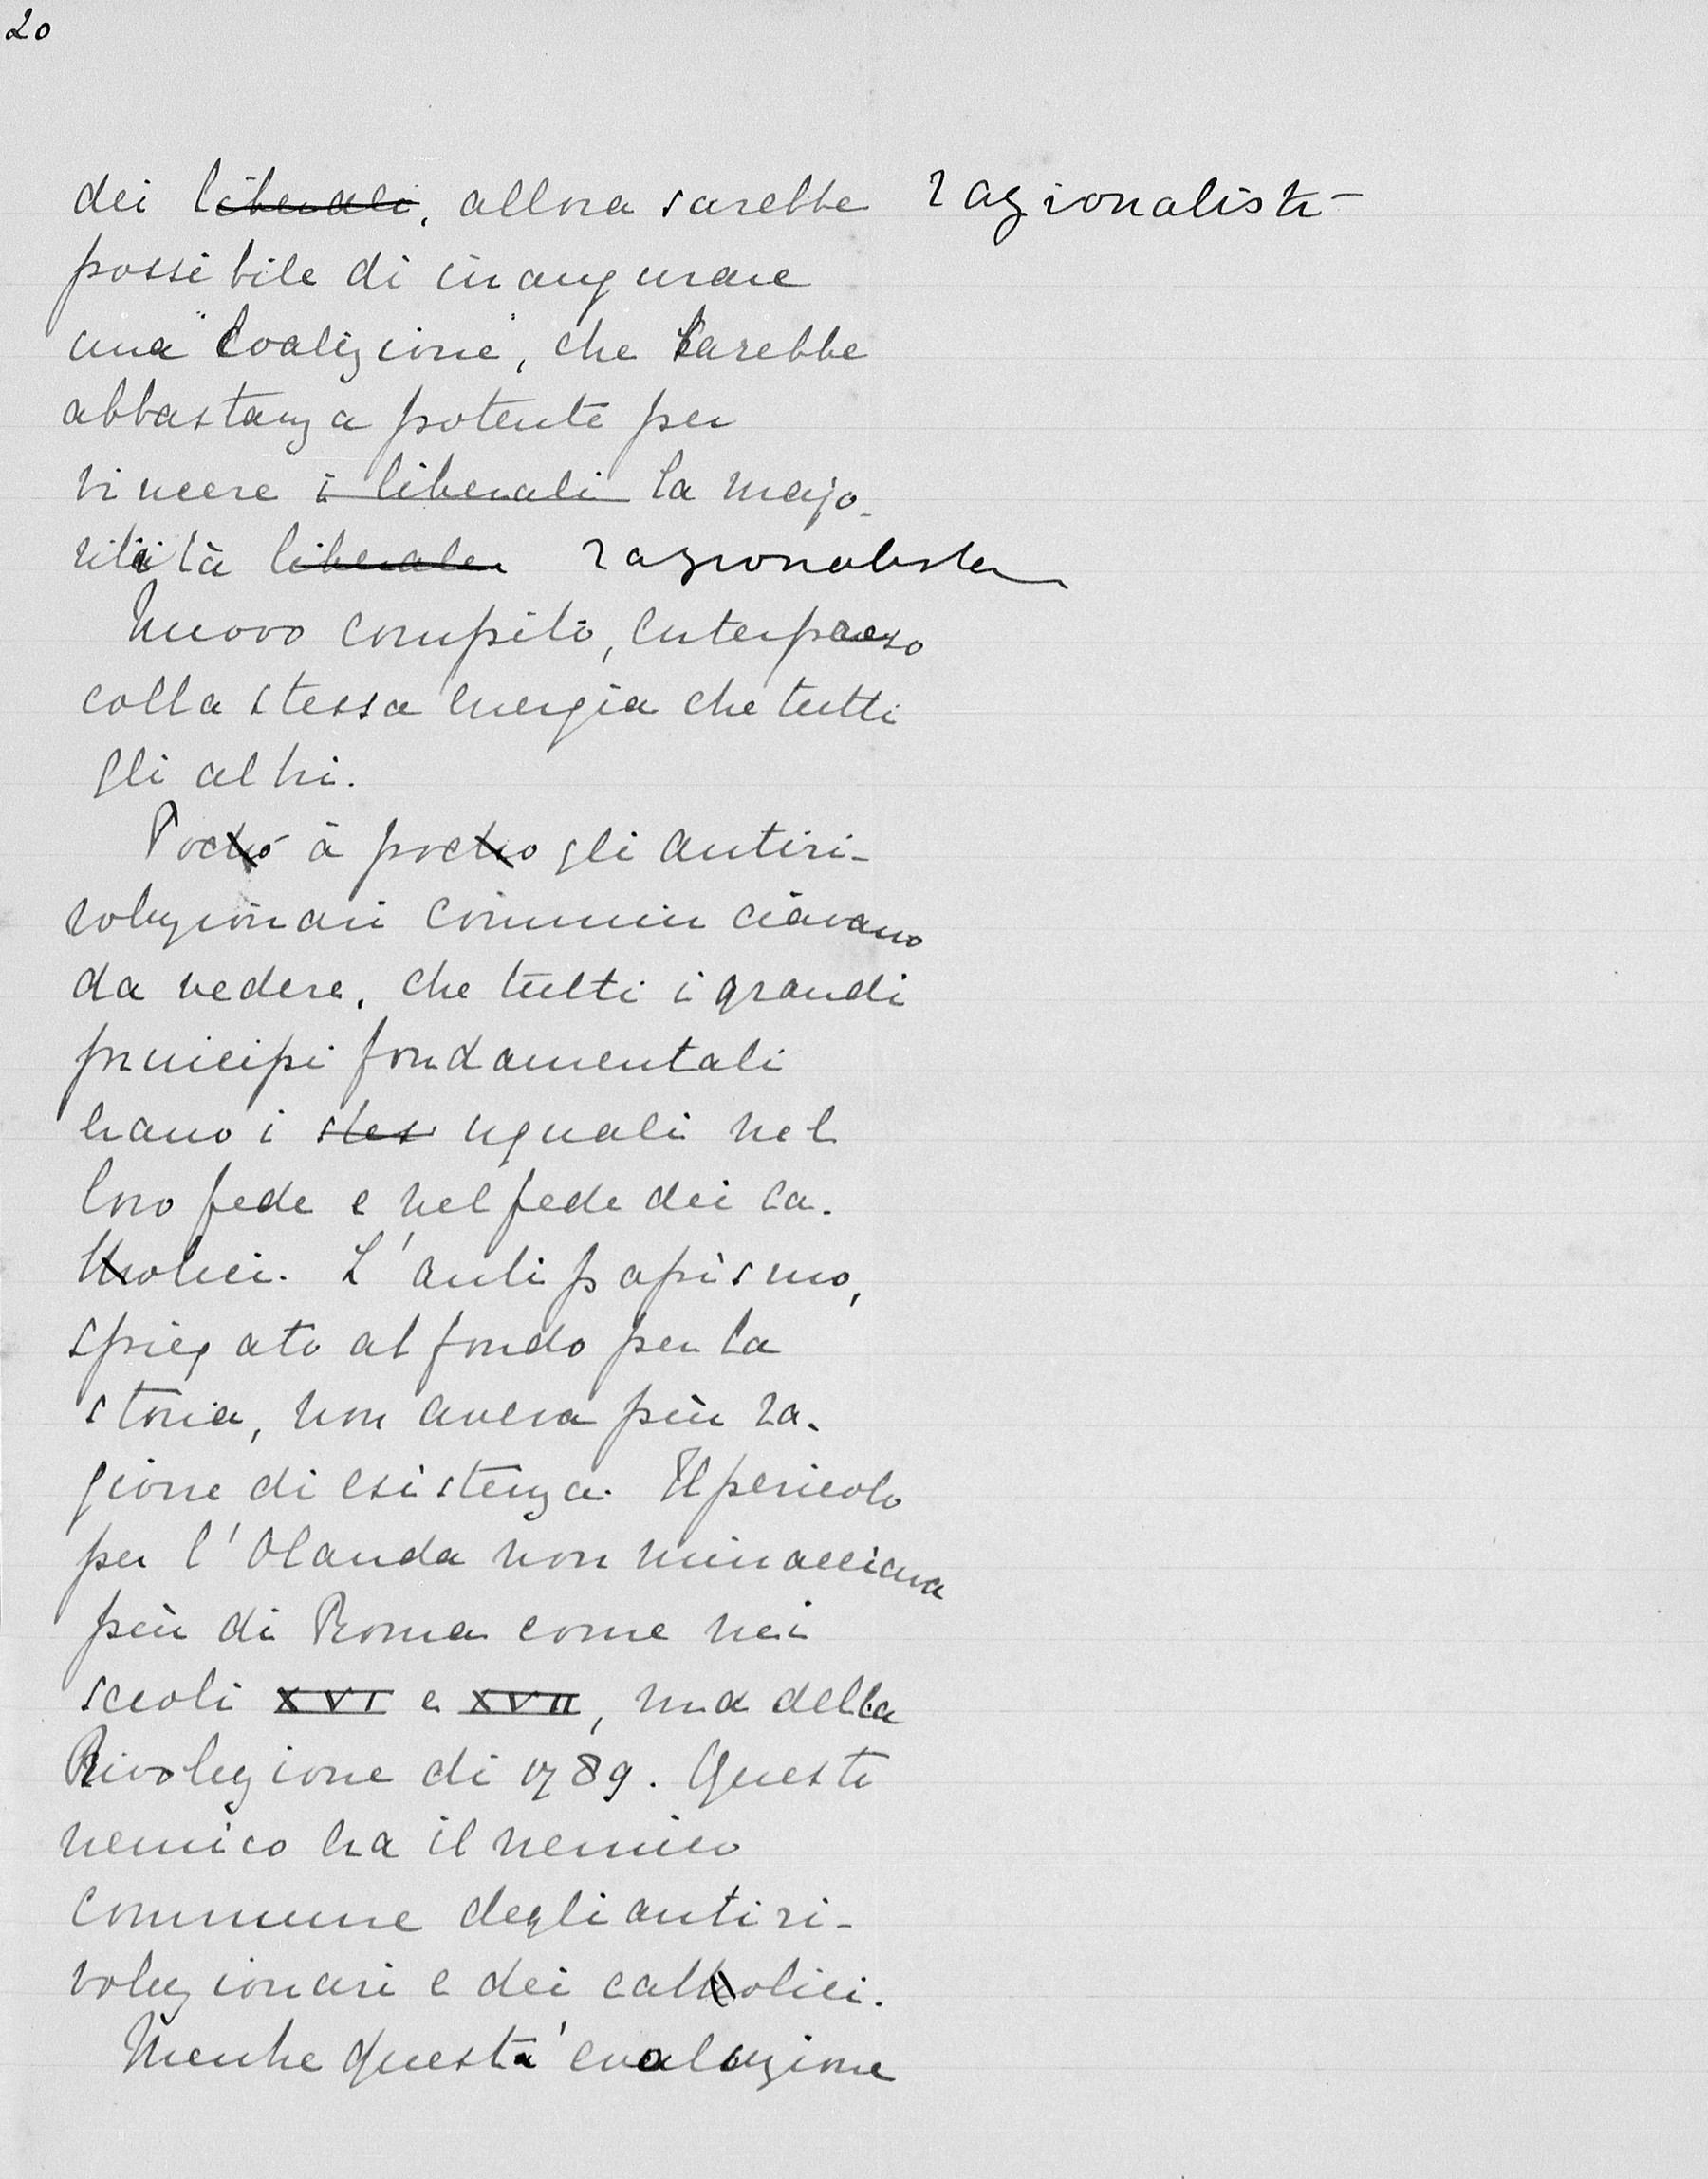 20
dei liberali, allora sarebbe razionalisti
possibile di inaugurare
una "coalizione", che sarebbe
abbastanza potente per
vincere i liberali la majo-
rità liberale razionalista
Nuovo compito, enterpreso
colla stessa energia che tutti
gli altri.
Pocho à pocho gli antiri-
voluzionari comminciavano
da vedere, che tutti i grandi
principi fondamentali
hano i stes uguali nel
loro fede e nel fede dei ca-
tholici. L'antipapismo,
spiegato al fondo per la
storia, non aveva più ra-
gione di esistenza. Il pericolo
per l'Olanda non minacciava
più di Roma come nei
secoli XVI e XVII, ma della
Rivoluzione di 1789. Questo
nemico ha il nemico
commune degli antiri-
voluzionari e dei catholici.
Mentre questa evoluzione